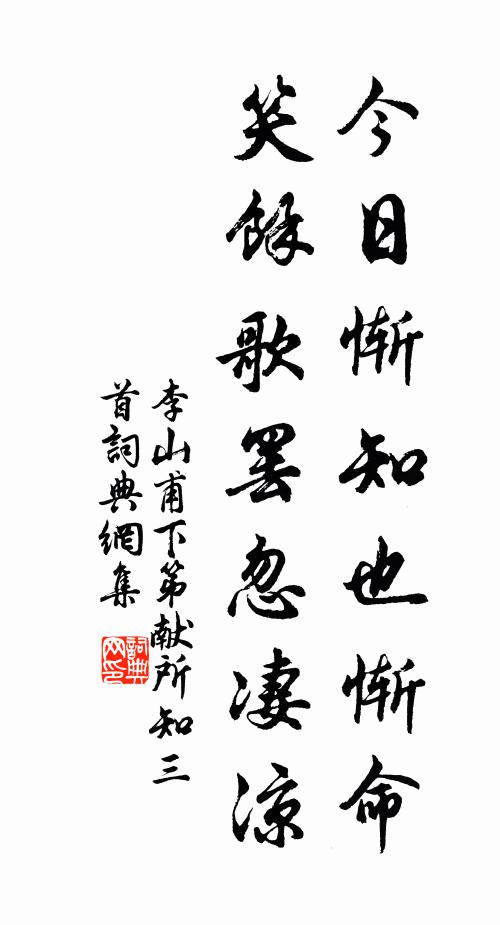 今日惭知也惭命
笑餘歌罢忽凄涼
李山甫下第献所知三
首詞典網集
詞典
网印